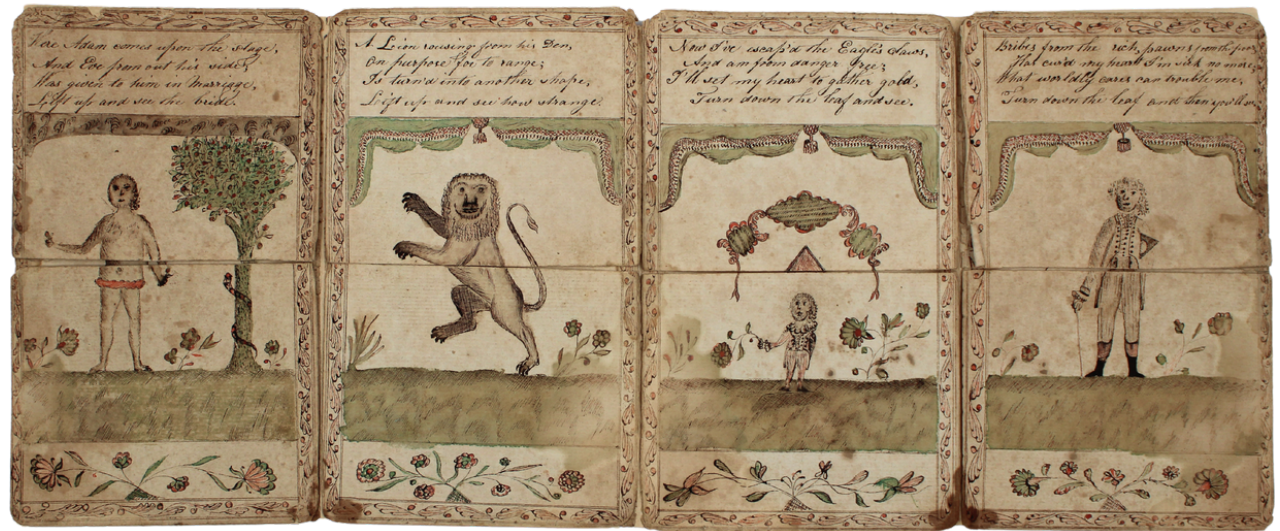 Here Adam comes upon the stage,
And Eve from out his side,
Was given to him in Marriage,
Lift up and see the bride.
A Leion rousing from his Den,
On purpose for to range,
Is turn'd into another shape,
Lift up and see how strange.
Now I've escap'd the Eagles claws,
And am from danger free,
I'll set my heart to gather gold,
Turn down the leaf and see.
Bribes from the rich, pawns from the poor
That my heart I'm sick no more,
What worldly cares can trouble me,
Turn down the leaf and then you'll see.